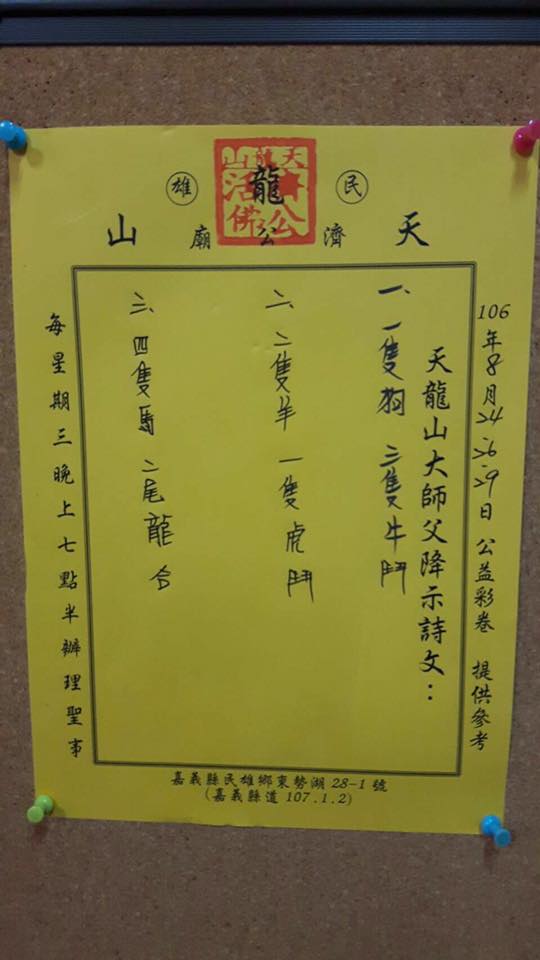 民雄
天龍山
濟公廟
天龍山濟公活佛
106年8月24.26.29日 公益彩卷 提供參考
天龍山大師父降示詩文：
一、一隻狗 三隻牛鬥
二、二隻羊 一隻虎鬥
三、四隻馬 二尾龍合
每星期三晚上七點半辦理聖事
嘉義縣民雄鄉東勢湖28-1號
(嘉義縣道107.1.2)